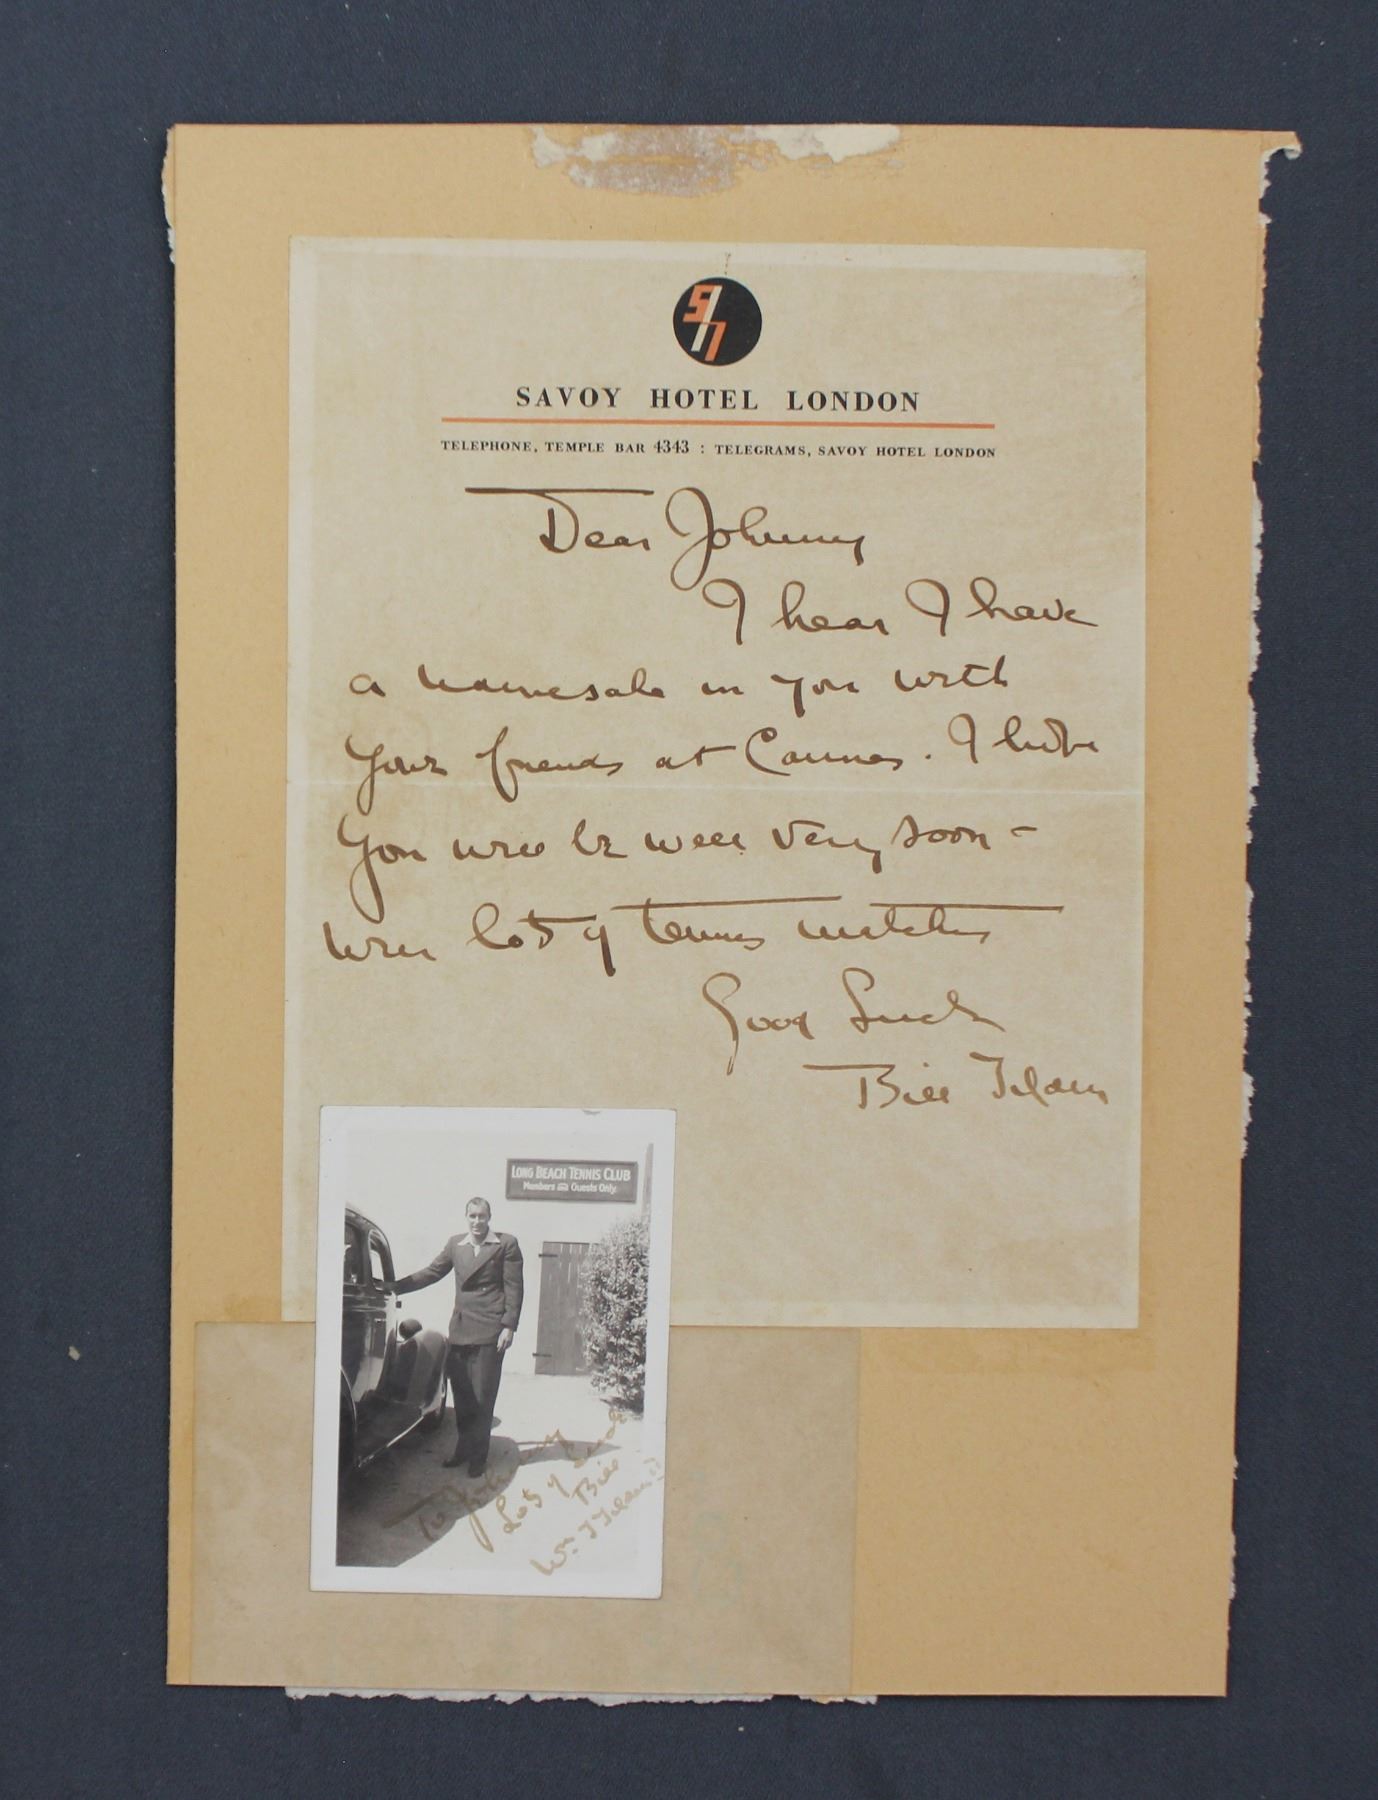 SAVOY HOTEL LONDON
TELEPHONE, TEMPLE BAR 4343 : TELEGRAMS, SAVOY HOTEL LONDON
Dear Johnny
I hear I have
a namesake in you with
your friends at Cannes. I hope
you will be well very soon –
win lots of tennis matches
Good Luck
Bill Tilden
LONG BEACH TENNIS CLUB
Members and Guests Only.
To Johnny
Lots of Luck
Bill
Wm. T Tilden II